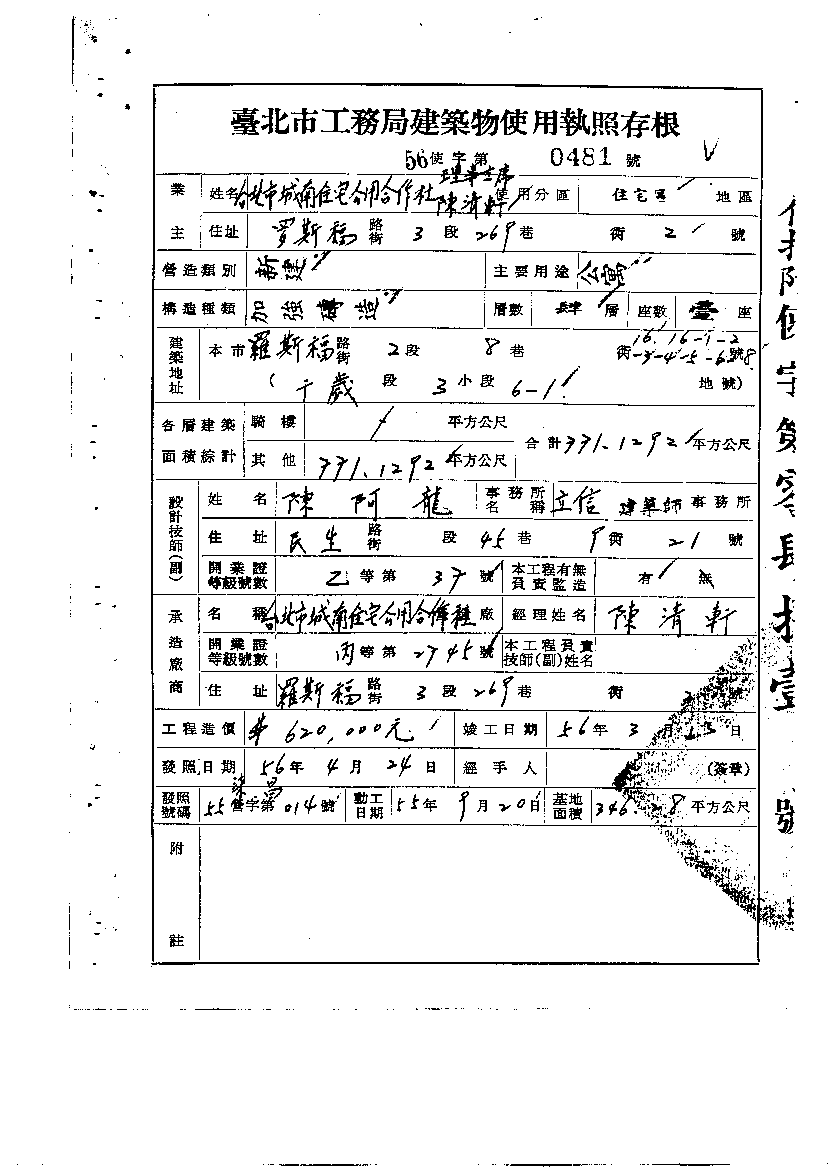 臺北市工務局建築物使用執照存根
56使字第 0481 號
業主 姓名 台北市城南住宅公用合作社 理事主席 陳清軒 使用分區 住宅區 地區
住址 罗斯福 路街 3 段 269 巷 街 21 號
營造類別 新建 主要用途 公寓
構造種類 加強磚造 層數 肆 層 座數 壹 座
建築地址 本市 羅斯福 路街 2 段 8 巷 街 16.16-1-2-3-4-5-6 號
(千歲 段 3 小段 6-1 地號)
各層建築面積綜計 騎樓 / 平方公尺 合計 331.1292 平方公尺
其他 331.1292 平方公尺
設計技師(副) 姓名 陳阿龍 事務所名稱 立信 建築師 事務所
住址 民生 路街 段 45 巷 9 街 21 號
開業證等級號數 乙等第 37 號 本工程有無負責監造 有 無
承造廠商 名稱 台北市城南住宅公用合作社 廠 經理姓名 陳清軒
開業證等級號數 丙等第 2745 號 本工程負責技師(副)姓名
住址 羅斯福 路街 3 段 269 巷 街 號
工程造價 $620,000元 竣工日期 56年 3 月 日
發照日期 56年 4 月 24 日 經手人 (簽章)
發照號碼 55營字第 014 號 動工日期 55年 9 月 20 日 基地面積 346.28 平方公尺
附註
號